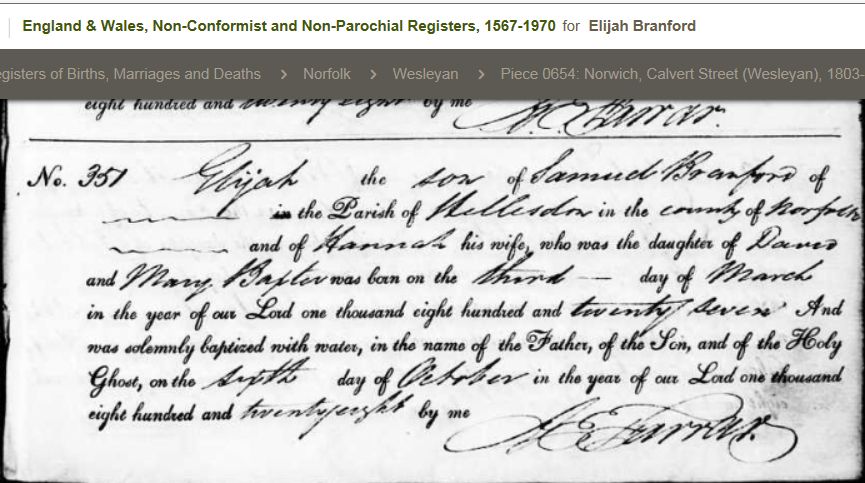 England & Wales, Non-Conformist and Non-Parochial Registers, 1567-1970 for Elijah Branford
egisters of Births, Marriages and Deaths > Norfolk > Wesleyan > Piece 0654: Norwich, Calvert Street (Wesleyan), 1803-
eight hundred and twenty eight by me Farrar.
No. 351 Elijah the son of Samuel Branford of
in the Parish of Hellesdon in the county of Norfolk
and of Hannah his wife, who was the daughter of David
and Mary Baxter was born on the third day of March
in the year of our Lord one thousand eight hundred and twenty seven And
was solemnly baptized with water, in the name of the Father, of the Son, and of the Holy
Ghost, on the sixth day of October in the year of our Lord one thousand
eight hundred and twenty eight by me
Farrar.